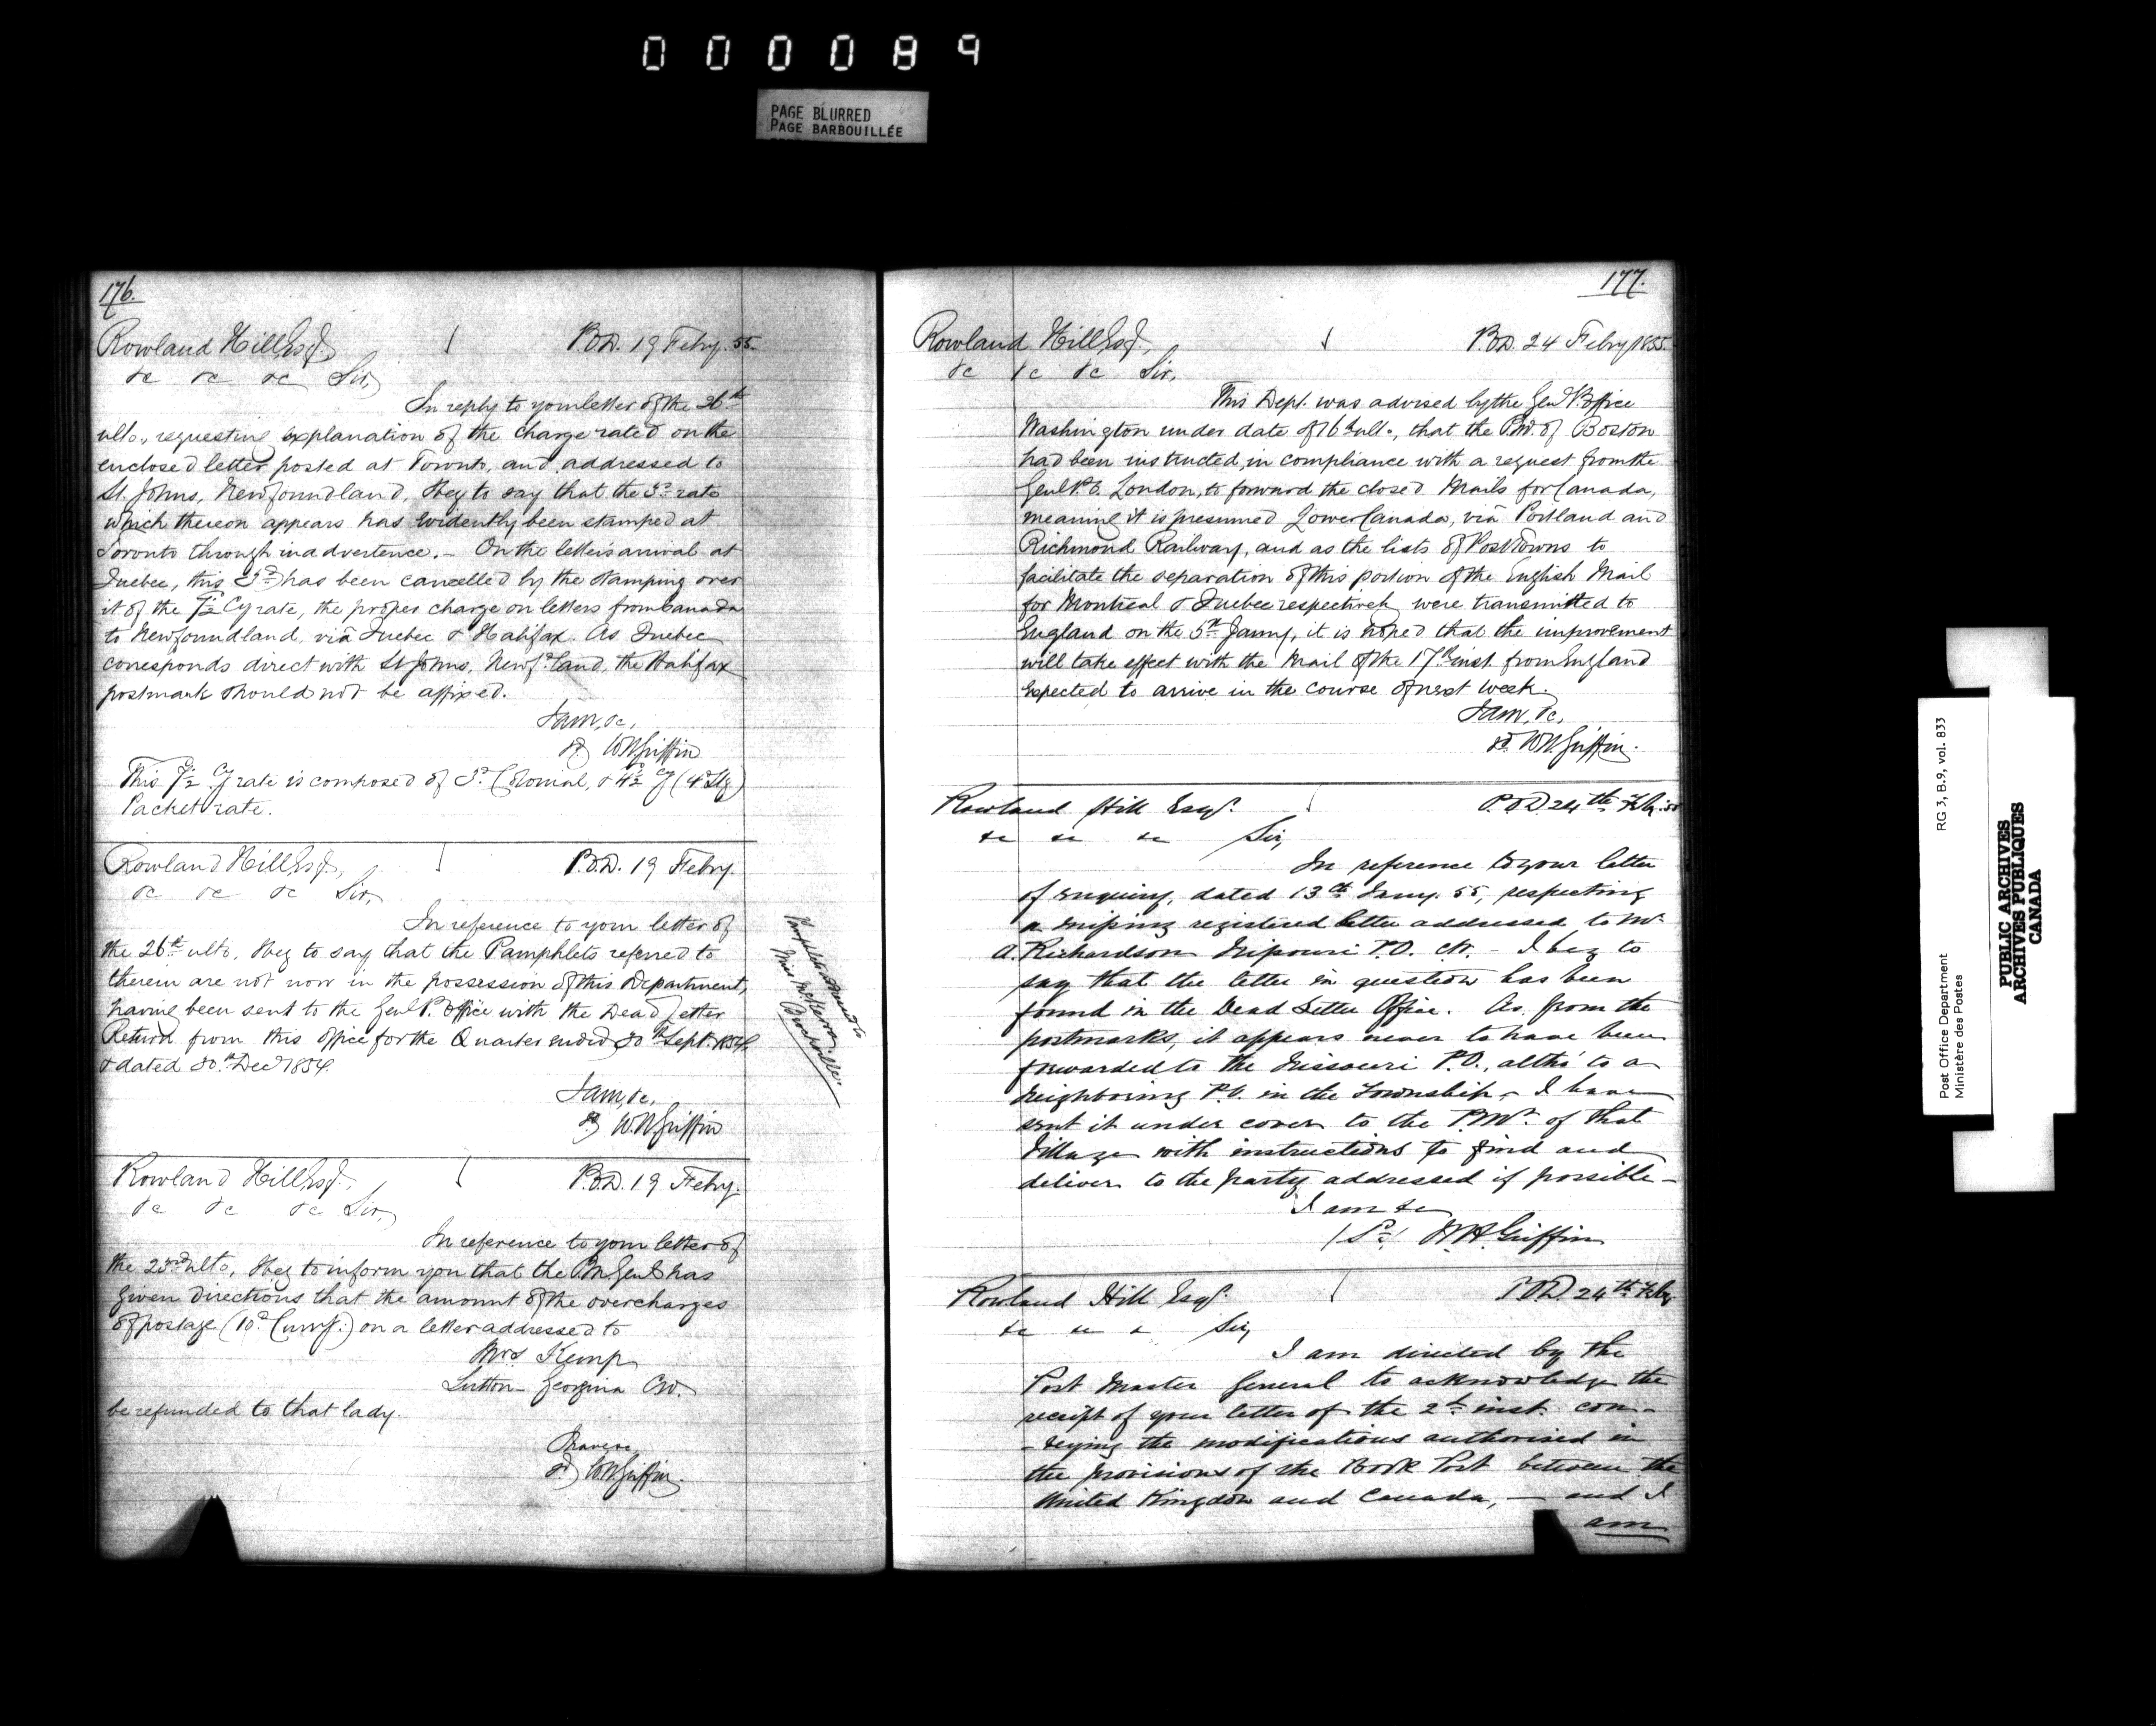 000089
PAGE BLURRED
PAGE BARBOUILLÉE
176.
Rowland Hill, Esq. P.O.D. 19 Feby. 55.
&c &c &c Sir,
In reply to your letter of the 26th
ulto., requesting explanation of the charge rated on the
enclosed letter posted at Toronto, and addressed to
St. Johns, Newfoundland, I beg to say that the 3d rate
which thereon appears has evidently been stamped at
Toronto through inadvertence. - On the letters arrival at
Quebec, this 3d has been cancelled by the stamping over
it of the 7½ Cy rate, the proper charge on letters from Canada
to Newfoundland, viâ Quebec & Halifax. As Quebec
corresponds direct with St Johns, Newfd.land, the Halifax
postmark should not be affixed.
I am, &c,
sd) W H Griffin
This 7½ Cy rate is composed of 3d Colonial, & 4½ Cy (4d Stg)
Packet rate.
Rowland Hill, Esq., P.O.D. 19 Feby.
&c &c &c Sir,
In reference to your letter of
the 26th ulto, I beg to say that the Pamphlets referred to
therein are not now in the possession of this Department,
having been sent to the Genl P. Office with the Dead Letter
Return from this office for the Quarter ended 30th Sept. 1854
& dated 30th Decr 1854
I am, &c,
sd) W. H Griffin
Pamphlets addressed to
Miss
Brockville
Rowland Hill, Esq., P.O.D. 19 Feby.
&c &c &c Sir,
In reference to your letter of
the 23rd ulto, I beg to inform you that the P.M. Genl has
given directions that the amount of the overcharges
of postage (10d Currcy.) on a letter addressed to
Mrs Kemp
Sutton - Georgina CW.
be refunded to that lady.
I have &c
sd) W H Griffin.
177.
Rowland Hill, Esq., P.O.D. 24 Feby 1855.
&c &c &c Sir,
This Dept. was advised by the Genl P. Office
Washington under date of 16th ult., that the P.M. of Boston
had been instructed, in compliance with a request from the
Genl P.O. London, to forward the closed Mails for Canada,
meaning it is presumed Lower Canada, viâ Portland and
Richmond Railway, and as the lists of Post Towns to
facilitate the separation of this portion of the English Mail
for Montreal & Quebec respectively were transmitted to
England on the 5th Janny, it is hoped that the improvement
will take effect with the Mail of the 17th inst. from England
expected to arrive in the course of next week.
I am, &c,
sd. W H Griffin.
Rowland Hill Esqr. P.O.D 24th Feby. 55
&c &c &c Sir,
In reference to your letter
of enquiry, dated 13th Jany. 55, respecting
a missing registered letter addressed to Mr
A. Richardson Missouri P.O. CW. - I beg to
say that the letter in question has been
found in the Dead Letter Office. As from the
postmarks, it appears never to have been
forwarded to the Missouri P.O., altho' to a
neighboring P.O. in the Township, - I have
sent it under cover to the P.Mr. of that
Village with instructions to find and
deliver to the party addressed if possible -
I am &c
(Sd) W. H. Griffin
Rowland Hill Esqr. P.O.D. 24th Feby
&c &c & Sir,
I am directed by the
Post Master General to acknowledge the
receipt of your letter of the 2d inst. con-
-veying the modifications authorised in
the provisions of the Book Post between the
United Kingdom and Canada, — and I
am
Post Office Department RG 3, B.9, vol. 833
Ministère des Postes
PUBLIC ARCHIVES
ARCHIVES PUBLIQUES
CANADA